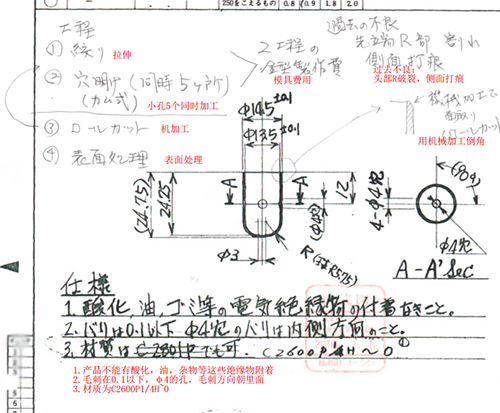 250をこえるもの 0.8 0.9 1.8 2.0
工程
① 絞り
拉伸
② 穴明け (同時5ヶ所)
(カム式)
小孔5个同时加工
③ ロールカット
机加工
④ 表面処理
表面处理
2工程の
金型製作費
模具费用
過去の不良
先端R部 割れ
側面打痕
过去不良:
头部R破裂, 侧面打痕
機械加工で
面取り
(ロールカット)
用机械加工倒角
Φ14.5±0.1
Φ13.5±0.1
A
A
(24.75)
24.25
12
Φ3
4-Φ4穴
Φ4穴
A-A' Sec
仕様
1. 酸化, 油, ゴミ等の電気絶縁物の付着なきこと。
2. バリは0.1以下 Φ4穴のバリは内側方向のこと。
3. 材質は C2801Pでも可. C2600P1/4H~0
1.产品不能有酸化, 油, 杂物等这些绝缘物附着
2.毛刺在0.1以下, φ4的孔, 毛刺方向朝里面
3.材质为C2600P1/4H~0